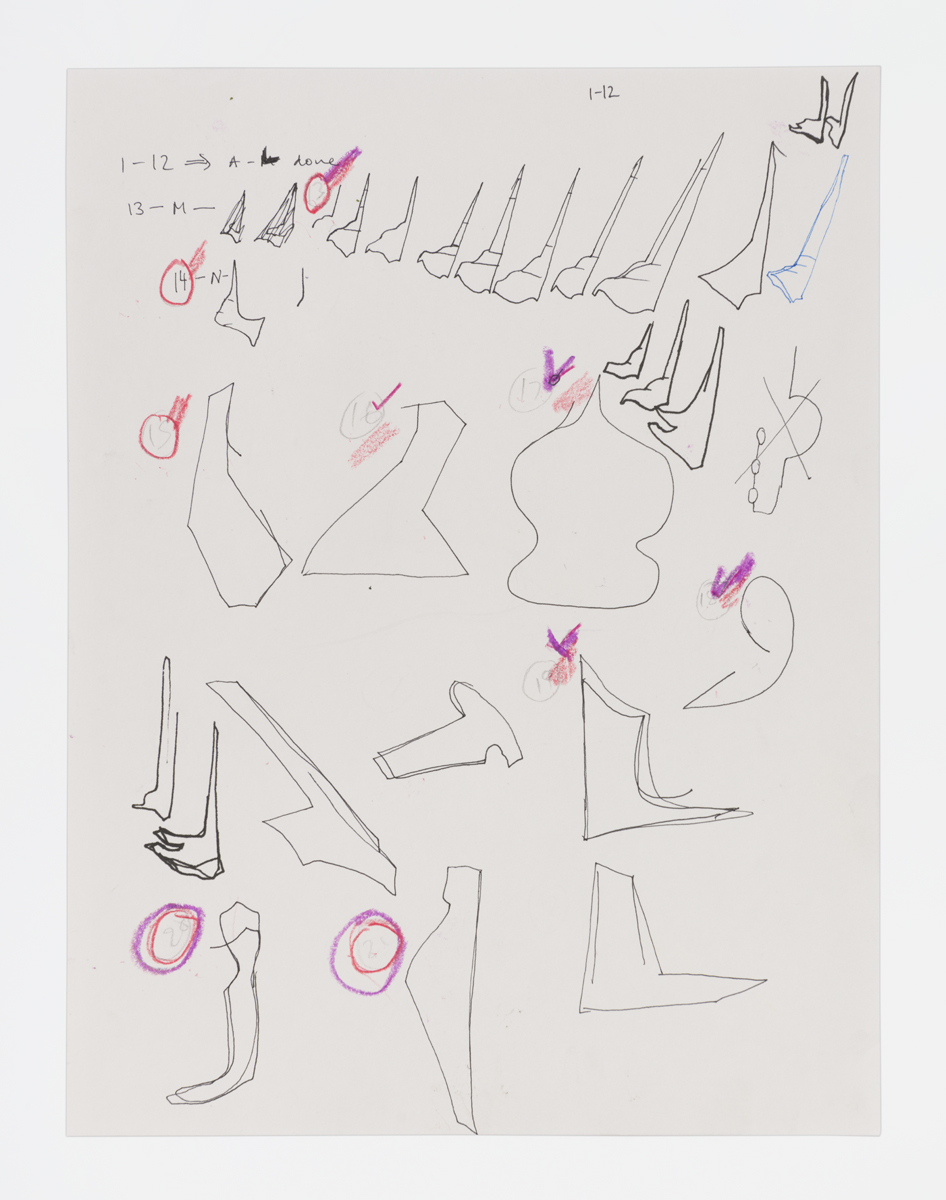 1-12
1-12 ⇒ A - done
13 - M -
14 - N-
15
16
17
18
19
20